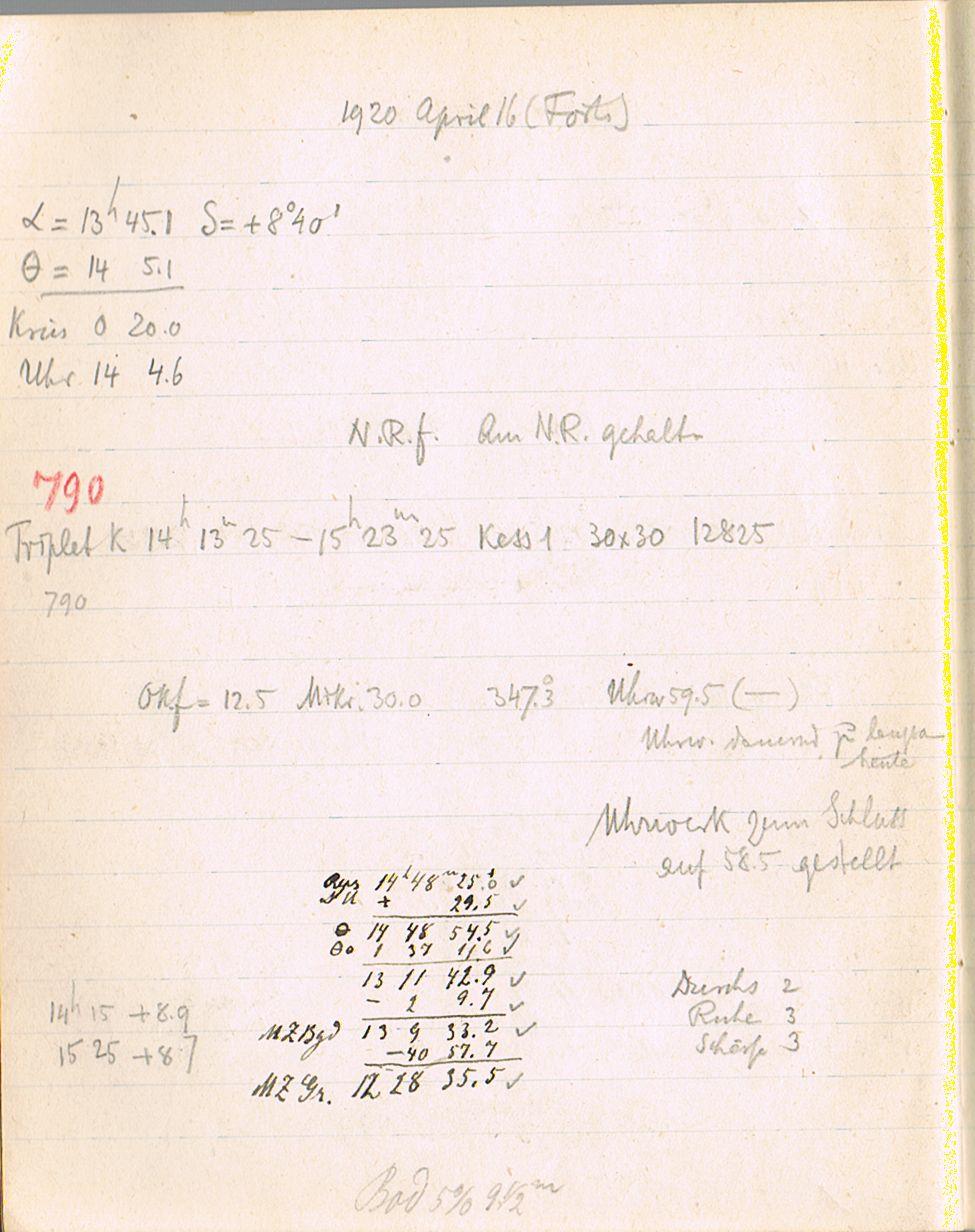 1920 April 16 (Forts)
α = 13ʰ 45.1 δ = +8°40'
θ = 14 5.1
Kreis 0 20.0
Uhr 14 4.6
N.R.f. Am N.R. gehalt.
790
Triplet K 14ʰ 13ᵐ 25 – 15ʰ 23ᵐ 25 Kass 1 30x30 12825
790
Okf = 12.5 Mikr. 30.0 347.3° Uhrw 59.5 (—)
Uhrw. dauernd zu langsam
heute
Uhrwerk zum Schluss
auf 58.5 gestellt
14ʰ 48ᵐ 25.0 ✓
+ 29.5 ✓
θ 14 48 54.5 ✓
θ₀ 1 37 11.6 ✓
13 11 42.9 ✓
– 2 9.7 ✓
MZBgd 13 9 33.2 ✓
–40 57.7
MZ Gr. 12 28 35.5 ✓
14ʰ 15 +8.9
15 25 +8.7
Durchs 2
Ruhe 3
Schärfe 3
Bad 5% 9½ᵐ